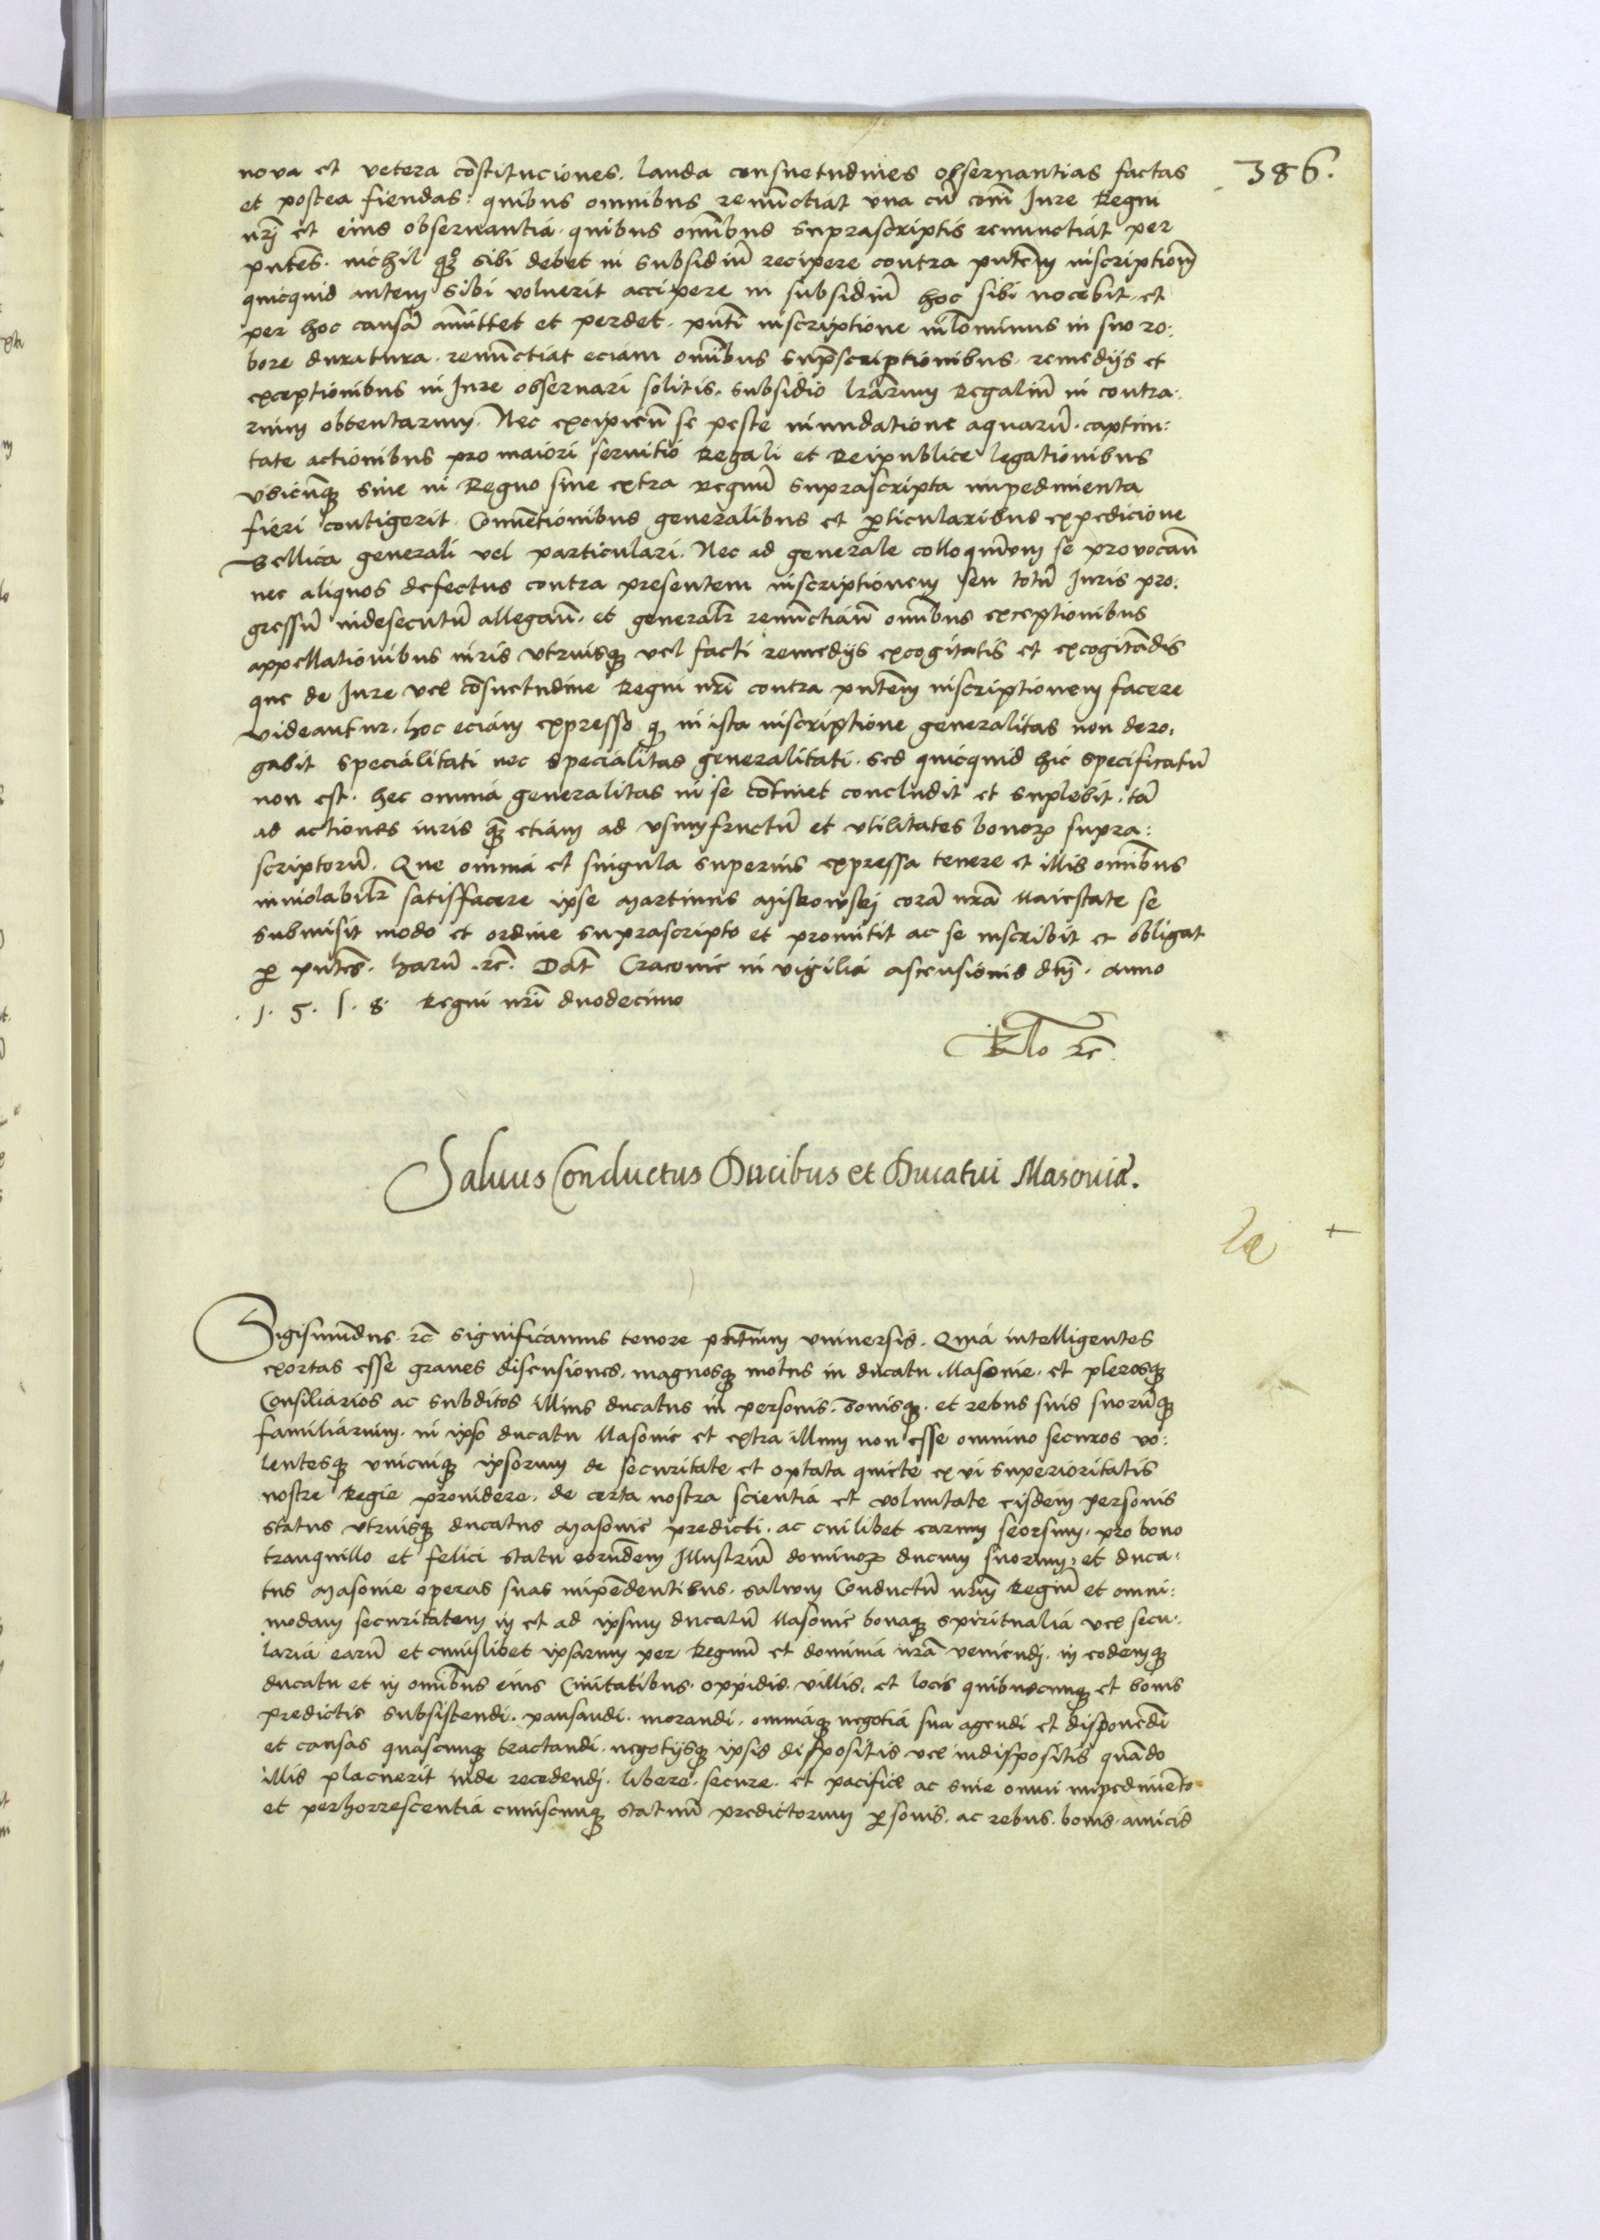 386.
nova et vetera cōstituciones. lauda consuetudines observantias factas
et postea fiendas: quibus omnibus renūctiat vna cū cōni Jure Regni
nrj̄ et eius observantia. quibus omībus suprascriptis renunctiat per
pntēs. nichil qꝫ sibi debet in subsidiū recipere contra pntēm inscriptionē
quicquid autem sibi voluerit accipere in subsidiū hoc sibi nocebit. et
per hoc causā amittet et perdet. pntī inscriptione nīlominus in suo ro:
bore duratura. renūctiat eciam omībus supscriptionibus. remedijs et
exceptionibus in Jure observari solitis. subsidio lrārum Regaliū in contra:
rium obtentarum. Nec excipieñ se peste inundatione aquarū. captivi:
tate actionibus pro maiori servitio Regali et Reipublice legationibus
vbicūqꝫ sive in Regno sive extra regnū suprascripta impedimenta
fieri contigerit. Conuētionibus generalibus et ꝑticularibus expedicione
bellica generali vel particulari. Nec ad generale colloquivm se provocañ
nec aliquos defectus contra presentem inscriptionem seu totū Juris pro:
gressū indesecutū allegañ. et generalr̄ renūctiañ omībus exceptionibus
appellationibus iuris vtriusqꝫ vel facti remedijs excogitatis et excogitādis
que de Jure vel cōsuetudine Regni nrī contra pntēm inscriptionem facere
videantur. hoc eciam expresso qꝫ in ista inscriptione generalitas non dero:
gabit specialitati nec specialitas generalitati. sed quicquid hic specificatū
non est. hec omnia generalitas in se cōtinet concludit et suplebit. tā
ad actiones iuris qꝫ etiam ad vsumfructū et vtilitates bonoꝝ supra:
scriptorū. Que omnia et singula superius expressa tenere et illis omībus
inviolabilr̄ satisffacere ipse Martinus Miskowskj corā nrā Maiestate se
submisit modo et ordine suprascripto et promitit ac se inscribit et obligat
ꝑ pntēs. harū. rc̄. Dat̄ Cracovie in vigilia ascensionis dnj̄. anno
. 1. 5. 1. 8. Regni nrī duodecimo
Rlo rc̄
Saluus Conductus Ducibus et Ducatui Masoviæ.
+
Sigismūdus. rc̄ significamus tenore pntium vniversis. Quia intelligentes
exortas esse graues disensiones. magnosqꝫ motus in ducatu Masovie. et plerosqꝫ
Consiliarios ac subditos illius ducatus in personis. bonisqꝫ. et rebus suis suorūqꝫ
familiarium. in ipso ducatu Masovie et extra illum non esse omnino securos vo:
lentesqꝫ vnicuiqꝫ ipsorum de securitate et optata quiete ex vi superioritatis
nostre Regie providere. de certa nostra scientia et voluntate eisdem personis
status vtriusqꝫ ducatus Masovie predicti. ac cuilibet earum seorsum. pro bono
tranquillo et felici statu eorūdem Illustriū dominoꝝ ducum suorum, et duca:
tus Masovie operas suas impēdentibus. salvum Conductū nrm̄ Regiū et omni:
modam securitatem in et ad ipsum ducatū Masovie bonaqꝫ spiritualia vel secu:
laria earū et cuiuslibet ipsarum per Regnū et dominia nrā veniendj. in eodemqꝫ
ducatu et in omībus eius Civitatibus. oppidis. villis. et locis quibuscumqꝫ et bonis
predictis subsistendi. pausandi. morandi. omniaqꝫ negotia sua agendi et disponēdi
et causas quascumqꝫ tractandi. negotijsqꝫ ipsis dispositis vel indispositis quādo
illis placuerit inde recedendj. libere. secure. et pacifice ac sine omni impedimēto
et perhorrescentia cuiuscumqꝫ statuū predictorum ꝑsonis. ac rebus. bonis. amicis